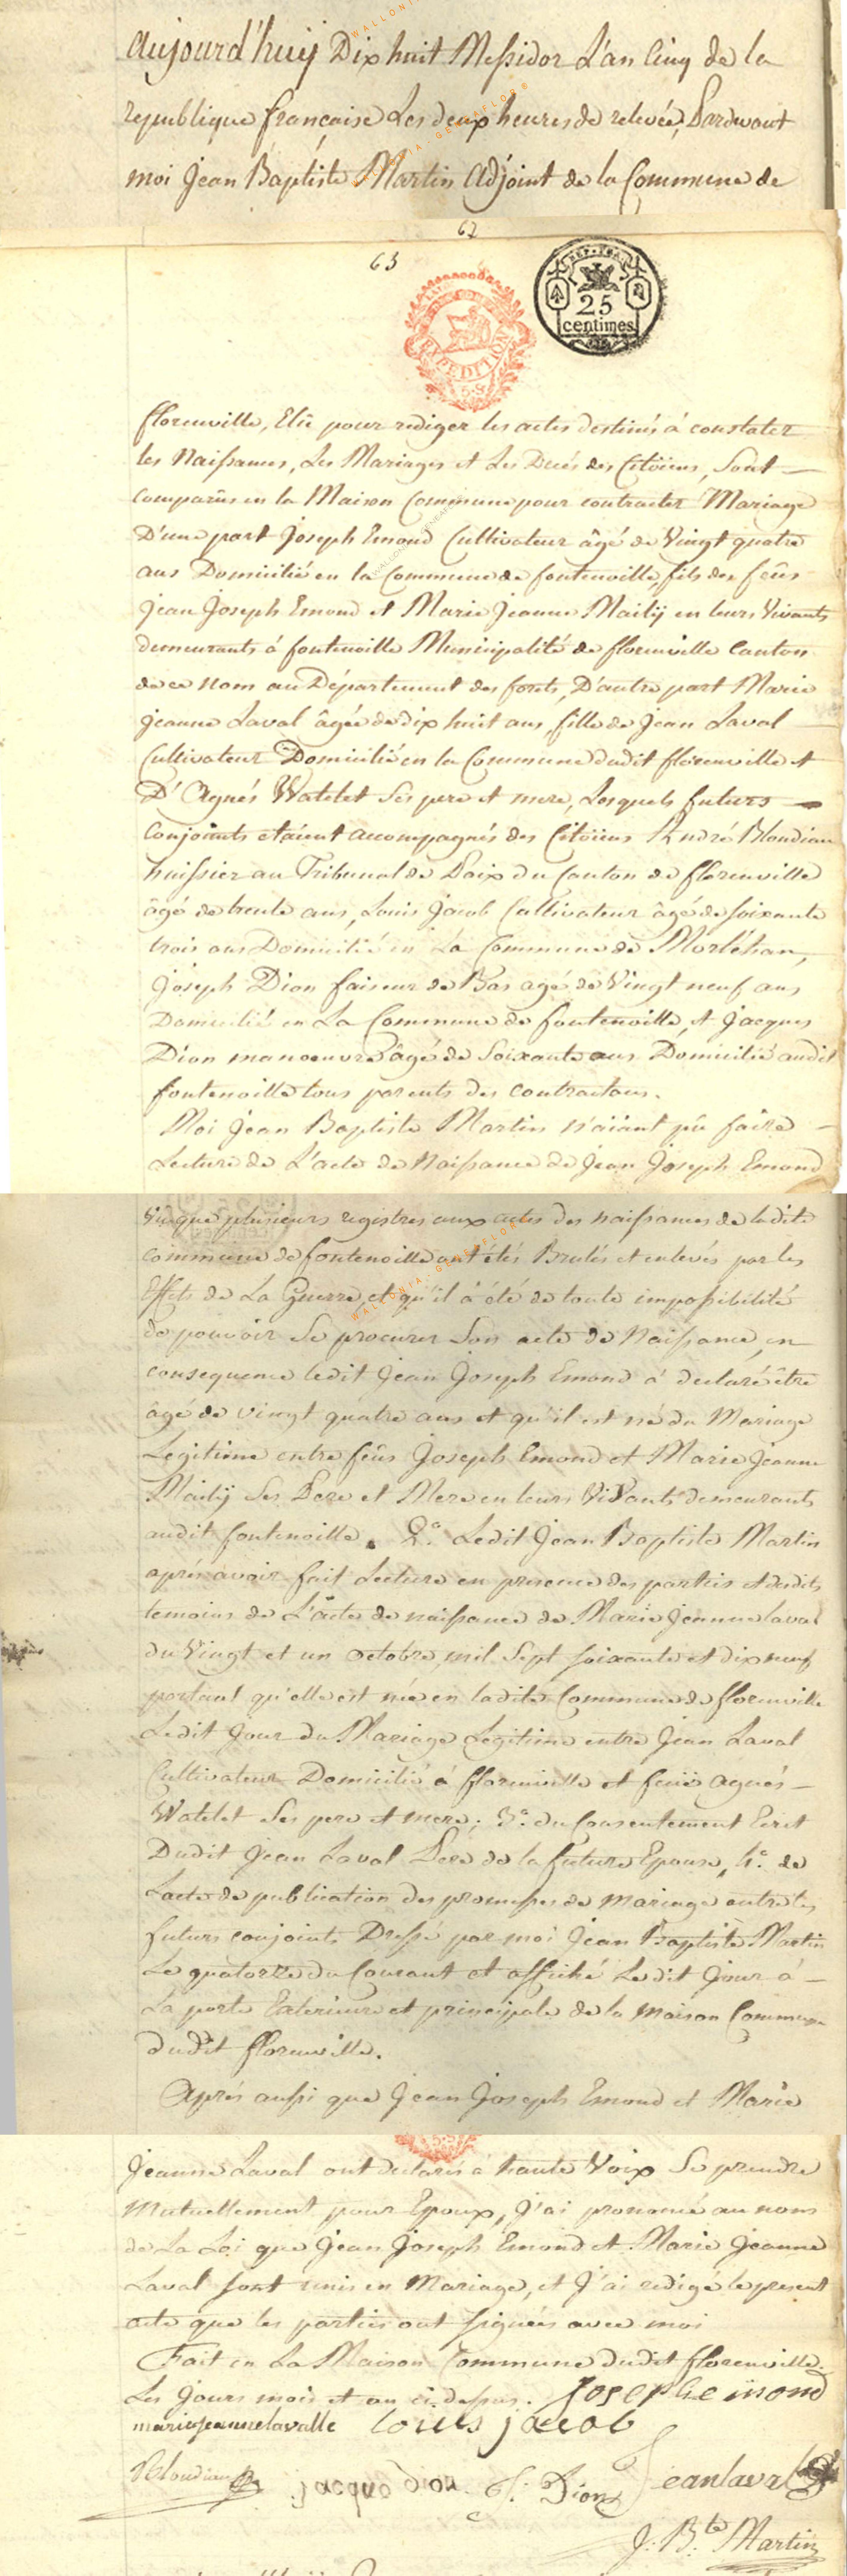 Aujourd'huij Dix huit Messidor L'an Cinq de la
republique française Les deux heures de relevée, Pardevant
moi Jean Baptiste Martin Adjoint de la Commune de
62
63
25
centimes
EXPEDITION
florenville, Elû pour rediger les actes destinés á constater
les Naissances, Les Mariages et Les Decés des Citöiens, Sont
Comparûs en la Maison Commune pour contracter Mariage
D'une part Joseph Emond Cultivateur âgé de Vingt quatre
ans Domicilié en la Commune de fontenoille, fils des feûs
Jean Joseph Emond et Marie Jeanne Mailij en leurs Vivants
demeurants á fontenoille Municipalité de florenville Canton
de ce Nom au Département des forets, D'autre part Marie
Jeanne Laval âgée de dix huit ans, fille de Jean Laval
Cultivateur Domicilié en la Commune dudit florenville et
D'Agnés Watelet Ses pere et mere, Lesquels futurs
Conjoints etaient accompagnés des Citöiens André Blondiau
huissier au Tribunal de Paix du Canton de florenville
âgé de trente ans, Louis Jacob Cultivateur âgé de soixante
trois ans Domicilié en La Commune de Morléhan,
Joseph Dion faiseur de Bas agé de Vingt neuf ans
Domicilié en La Commune de fontenoille, et Jacques
Dion manoeuvre âgé de Soixante ans Domicilié audit
fontenoille tous parents des contractans.
Moi Jean Baptiste Martin n'aïant pû faire
Lecture de L'acte de Naissance de Jean Joseph Emond
Vû que plusieurs registres aux actes des naissances de ladite
commune de fontenoille ont étés Brulés et enlevés par les
Effets de La Guerre, et qu'il á été de toute impossibilité
de pouvoir Se procurer Son acte de Naissance, en
consequence ledit Jean Joseph Emond á declaré être
âgé de vingt quatre ans et qu'il est né du Mariage
Legitime entre feûs Joseph Emond et Marie Jeanne
Mailij Ses Pere et Mere en leurs ViVants demeurants
audit fontenoille. 2.° Ledit Jean Baptiste Martin
aprés avoir fait Lecture en presence des parties et desdits
temoins de L'acte de naissance de Marie Jeanne laval
du Vingt et un octobre mil Sept soixante et dix neuf
portant qu'elle est née en ladite Commune de florenville
Ledit Jour du Mariage Legitime entre Jean Laval
Cultivateur Domicilié á florenville et feuë agnés
Watelet Ses pere et mere; 3.° du Consentement Ecrit
Dudit Jean Laval Pere de la future Epouse, 4.° de
L'acte de publication des promesses de mariage entre les
futurs conjoints Dressé par moi Jean Baptiste Martin
Le quatorze du Courant et affiché Ledit Jour á
La porte Exterieure et principale de la Maison Commune
dudit florenville.
Aprés aussi que Jean Joseph Emond et Marie
Jeanne Laval ont declarés á haute Voix Se prendre
Mutuellement pour Epoux, J'ai prononcé au nom
de La Loi que Jean Joseph Emond et Marie Jeanne
Laval sont unis en Mariage, et J'ai redigé le present
acte que les parties ont signées avec moi
Fait en La Maison Commune dudit florenville.
Les Jours mois et an ci-dessus. Joseph emond
marie jeanne lavalle louis jacob
Blondiau jacque dion J: Dion Jean laval
J: B:te Martin